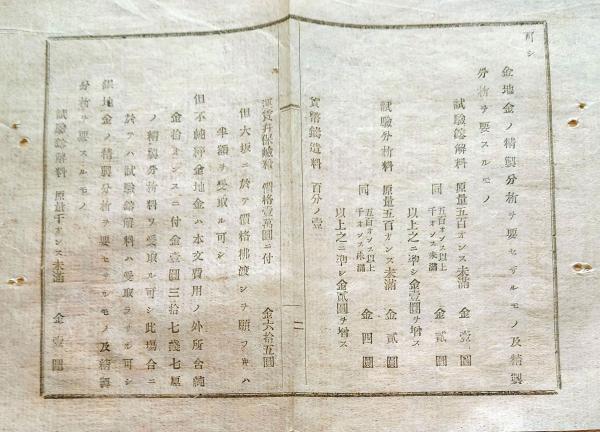 可シ
金地金ノ精製分析ヲ要セザルモノ及精製
分析ヲ要スルモノ
試驗鎔解料 原量五百オンス未滿 金壹圓
同 五百オンス以上千オンス未滿 金貳圓
以上之ニ準シ金壹圓ヲ增ス
試驗分析料 原量五百オンス未滿 金貳圓
同 五百オンス以上千オンス未滿 金四圓
以上之ニ準シ金貳圓ヲ增ス
貨幣鑄造料 百分ノ壹
運賃幷保險料 價格壹萬圓ニ付 金六拾五圓
但大坂ニ於テ價格拂渡シヲ願フ時ハ
半額ヲ受取ル可シ
但不純粹金地金ハ本文費用ノ外所含純
金拾オンスニ付金壹圓三拾七錢七厘
ノ精製分析料ヲ受取ル可シ此場合ニ
於テハ試驗鎔解料ハ受取ラザル可シ
銀地金ノ精製分析ヲ要セザルモノ及精製
分析ヲ要スルモノ
試驗鎔解料 原量千オンス未滿 金壹圓
二